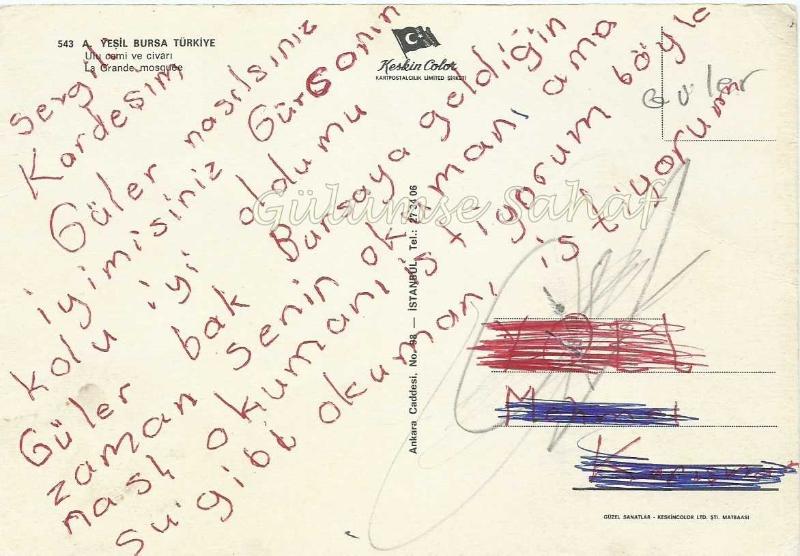 543 A. YEŞİL BURSA TÜRKİYE
Ulu cami ve civarı
La Grande mosquée
Keskin Color
KARTPOSTALCILIK LIMITED ŞİRKETİ
Sergili
Kardeşim
Güler nasılsınız
iyimisiniz Gürsonın
kolu iyi oldumu
Güler bak Bursaya geldiğin
zaman senin okumanı ama
nası okumanı istiyorum böyle
su gibi okumanı istiyorum
Güler
Gülümse Sahaf
Ankara Caddesi, No. 98 — İSTANBUL Tel.: 27 34 06
Mehmet
GÜZEL SANATLAR - KESKİNCOLOR LTD. ŞTİ. MATBAASI